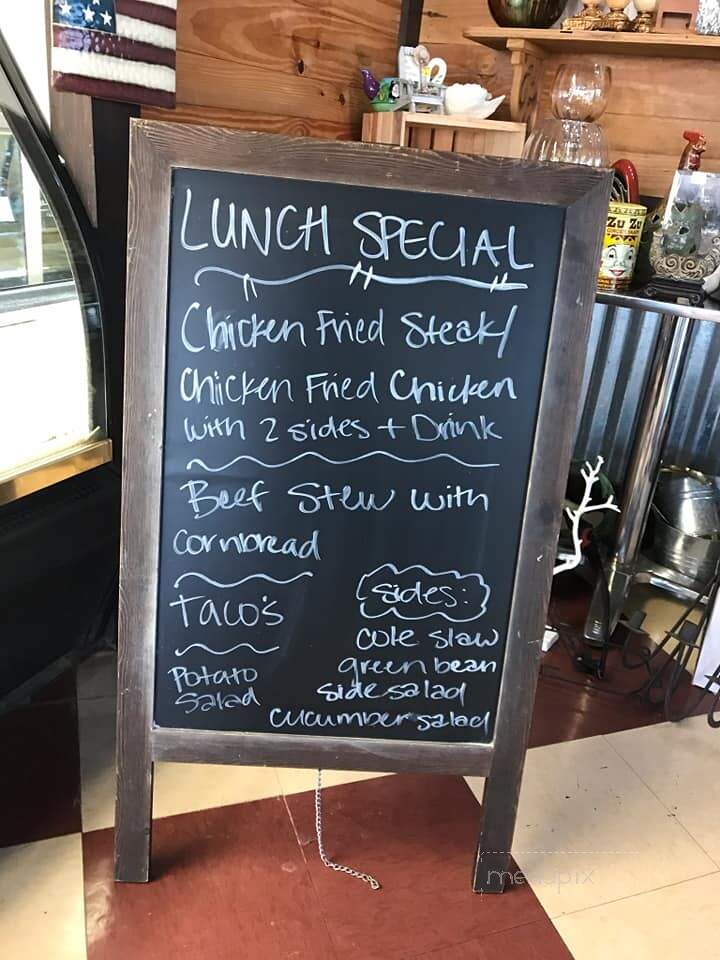 LUNCH SPECIAL
Chicken Fried Steak/
Chicken Fried Chicken
with 2 sides + Drink
Beef Stew with
cornbread
Taco's
Potato
Salad
Sides:
cole slaw
green bean
side salad
cucumber salad
Zu Zu
menupix